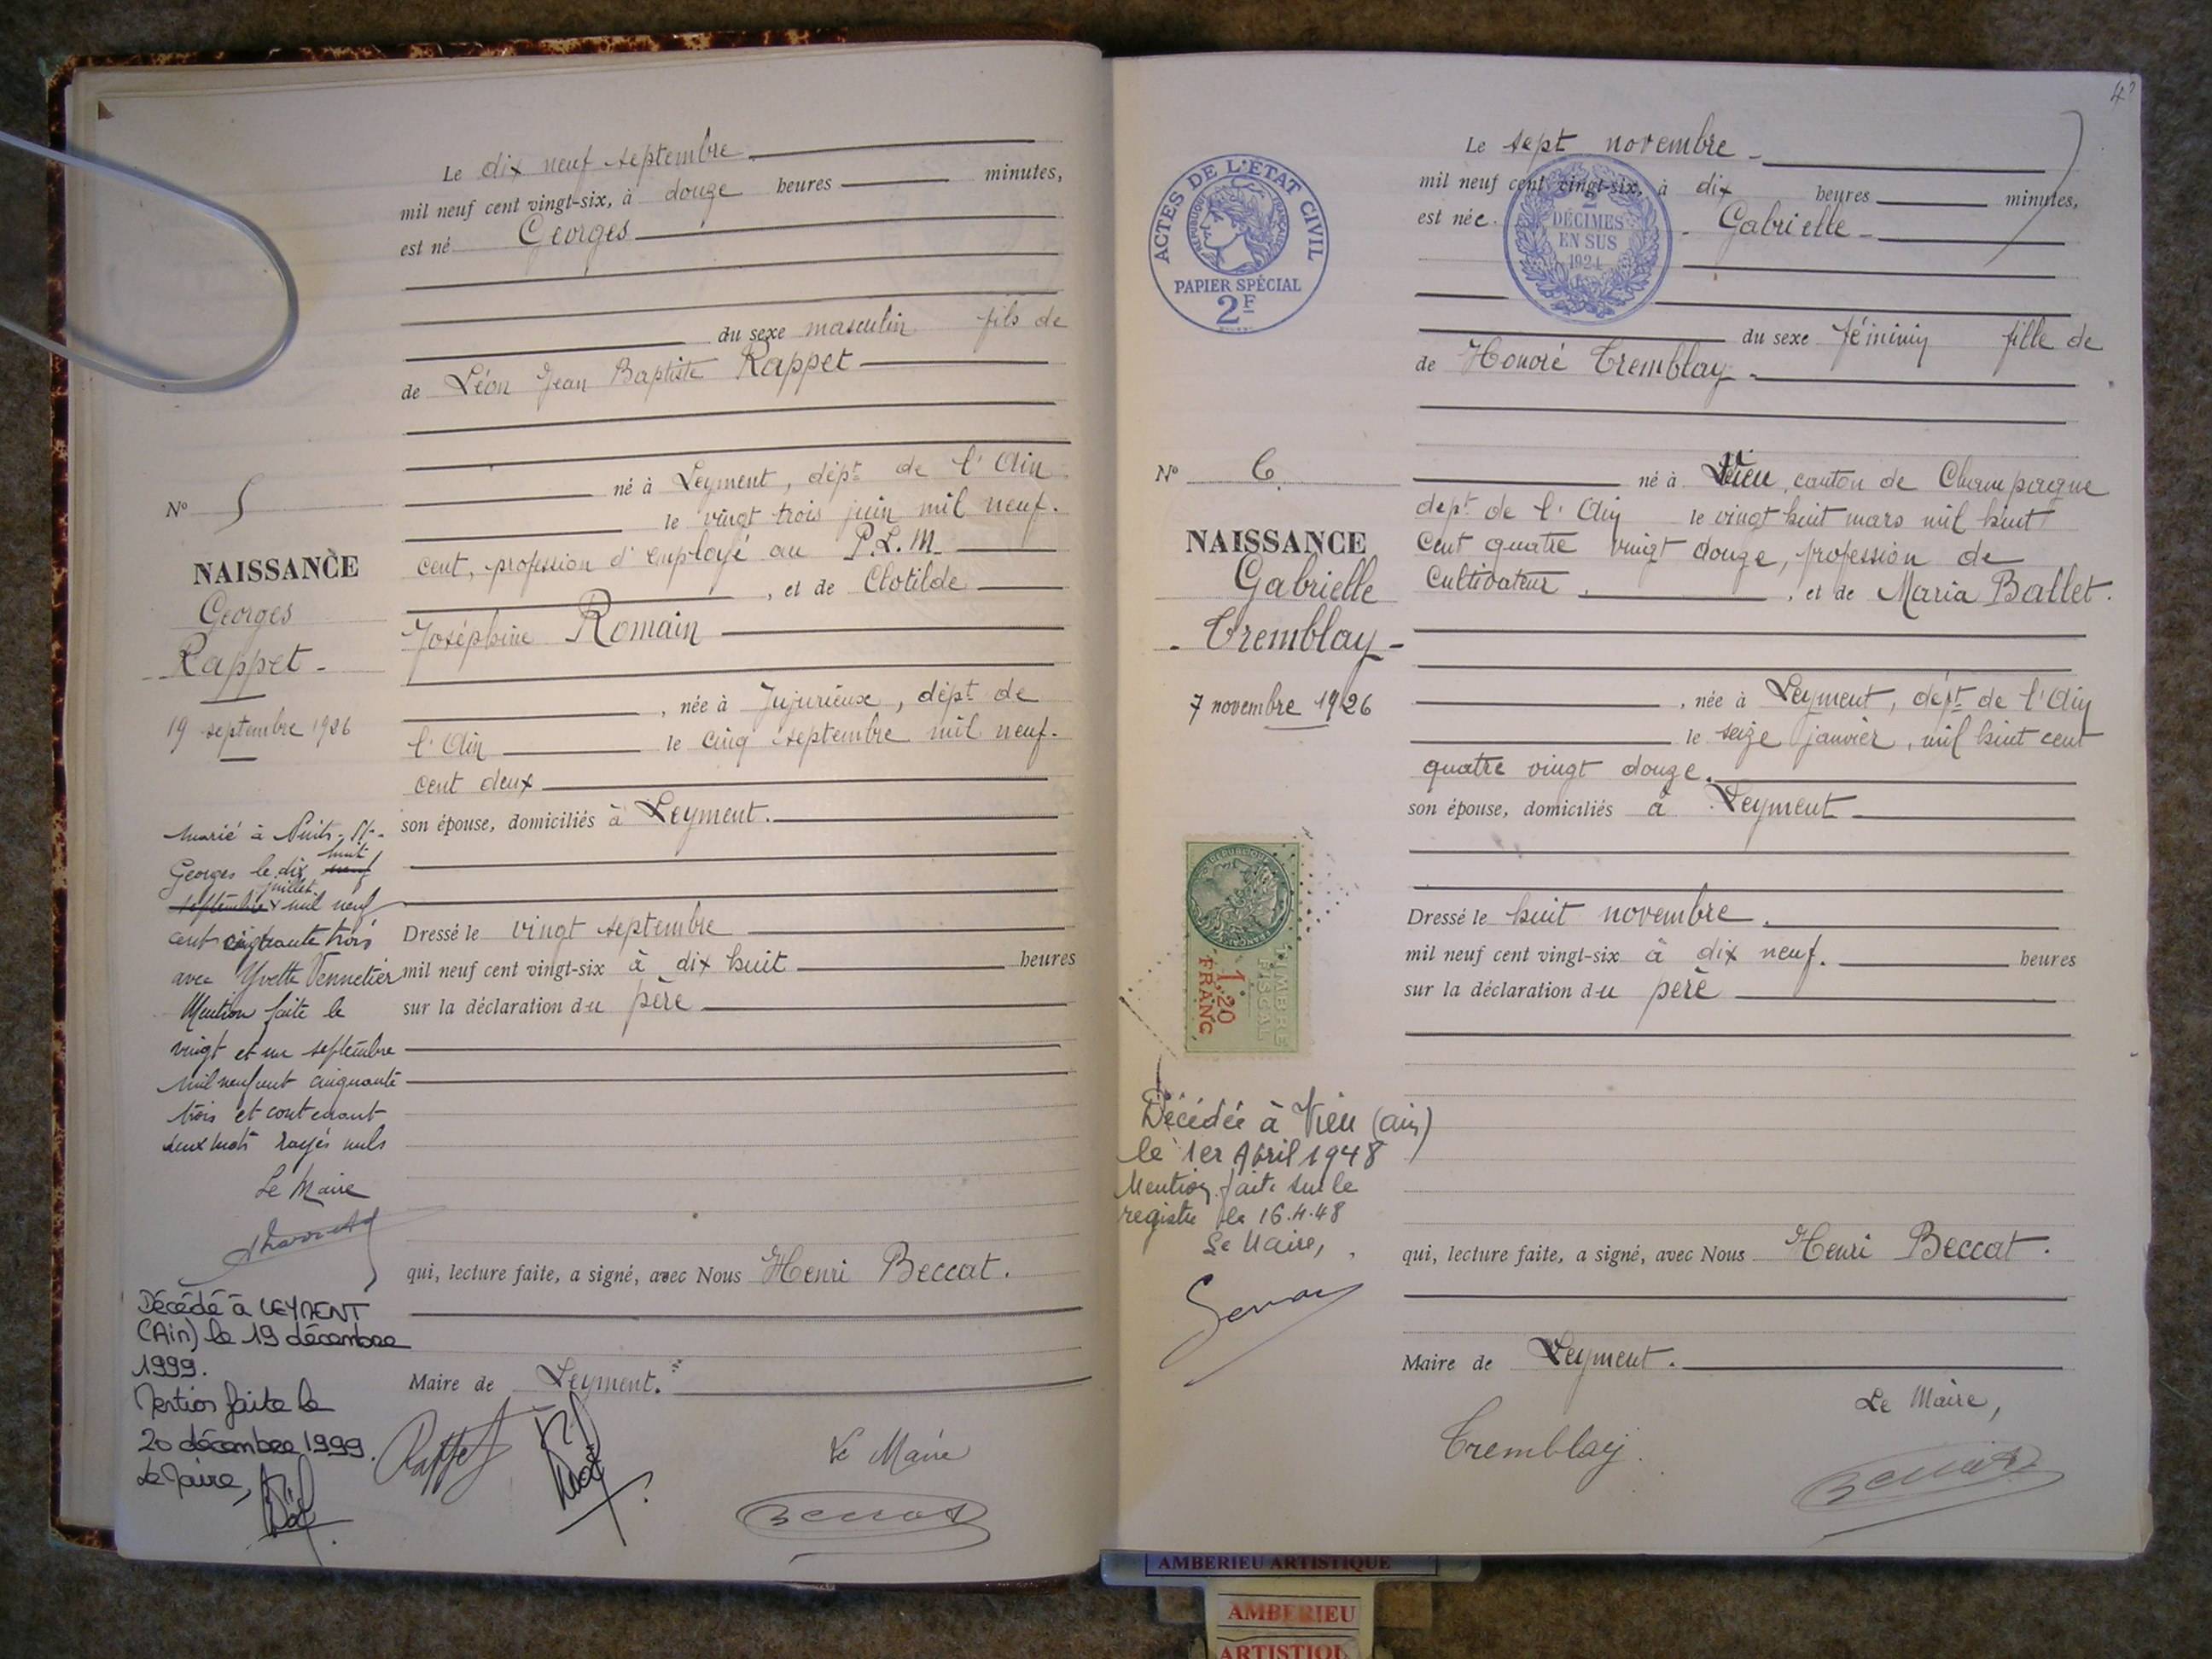 Le dix neuf septembre
mil neuf cent vingt-six, à douze heures minutes,
est né Georges
du sexe masculin fils de
de Léon Jean Baptiste Rappet
né à Leyment, dépt de l'Ain
le vingt trois juin mil neuf.
cent, profession d'employé au P.L.M
, et de Clotilde
Joséphine Romain
, née à Jujurieux, dépt de
l'Ain le cinq septembre mil neuf.
cent deux
son épouse, domiciliés à Leyment.
Dressé le vingt septembre
mil neuf cent vingt-six à dix huit heures
sur la déclaration du père
qui, lecture faite, a signé, avec Nous Henri Beccat.
Maire de Leyment.
Rappet
Le Maire
Nº 5
NAISSANCE
Georges
Rappet -
19 septembre 1926
Marié à Nuits-St-
Georges le dix huit neuf
juillet
septembre mil neuf
cent cinquante trois
avec Yvette Vennetier
Mention faite le
vingt et un septembre
mil neuf cent cinquante
trois et contenant
deux mots rayés nuls
Le Maire
Décédé à LEYMENT
(Ain) le 19 décembre
1999.
Mention faite le
20 décembre 1999.
Le Maire,
4
Le sept novembre -
mil neuf cent vingt-six, à dix heures minutes,
est née. Gabrielle -
du sexe féminin fille de
de Honoré Tremblay -
né à Vieu, canton de Champagne
dept de l'Ain le vingt huit mars mil huit
cent quatre vingt douze, profession de
cultivateur , et de Maria Ballet.
, née à Leyment, dépt de l'Ain
le seize janvier, mil huit cent
quatre vingt douze.
son épouse, domiciliés à Leyment
Dressé le huit novembre.
mil neuf cent vingt-six à dix neuf. heures
sur la déclaration du père
qui, lecture faite, a signé, avec Nous Henri Beccat.
Maire de Leyment.
Le Maire,
Tremblay.
ACTES DE L'ETAT CIVIL
REPUBLIQUE FRANÇAISE
PAPIER SPÉCIAL
2F
DÉCIMES
EN SUS
1924
Nº 6
NAISSANCE
Gabrielle
- Tremblay -
7 novembre 1926
TIMBRE
FISCAL
1.20
FRANC
Décédée à Vieu (ain)
le 1er Abril 1948
Mention faite sur le
registre le 16.4.48
Le Maire,
AMBERIEU ARTISTIQUE
AMBERIEU
ARTISTIQU